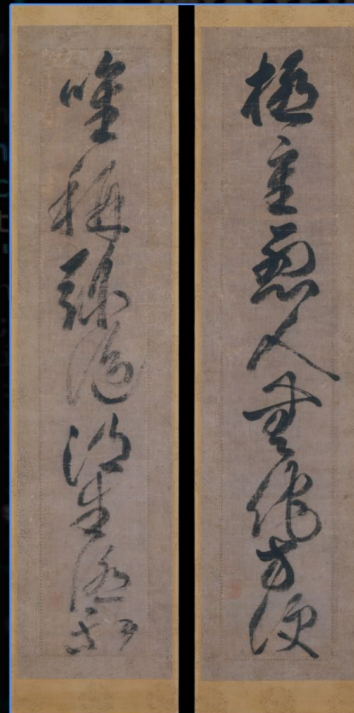 極重悪人無他方便
唯稱弥陀得生極楽